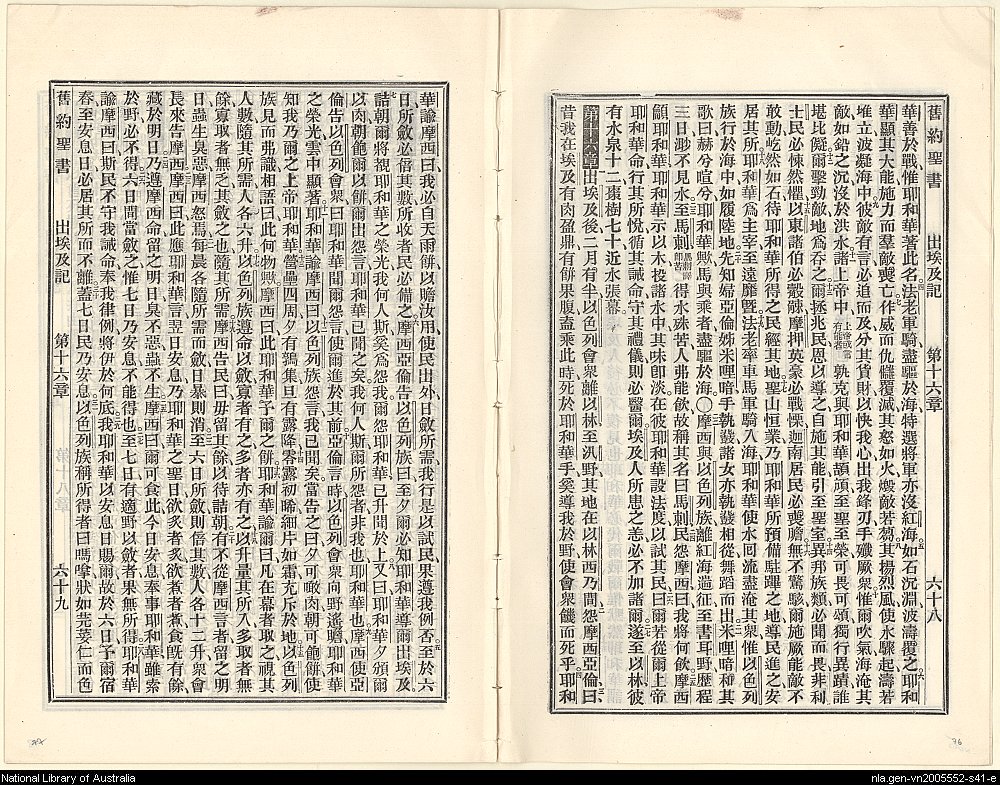 舊約聖書 出埃及記 第十六章 六十八
華善於戰惟耶和華著此名法老軍騎盡驅於海特選將軍亦沒紅海如石沉淵波濤覆之耶和
華顯其大能施力而羣敵喪亡作威而仇讎覆滅其怒如火燬敵若芻其揚烈風使水驟起濤若
堆立波凝海中彼敵有言必追而及分其貨財以快我心出我鋒刃手殲厥衆惟爾吹氣海淹其
敵如鉛之沉沒於洪水諸上帝中孰克與耶和華頡頏至聖至榮可畏可頌獨行異蹟誰
堪比儗爾擊勁敵地爲吞之爾拯兆民恩以導之自施其能引至聖室異邦族類必聞而畏非利
士民必悚然懼以東諸伯必觳觫摩押英豪必戰慄迦南居民必喪膽無不驚駭爾施厥能敵不
敢動屹然如石待耶和華所得之民經其地聖山恒業乃耶和華所預備駐蹕之地導民進之安
居其所耶和華爲主宰至遠靡曁法老率車馬軍騎入海耶和華使水囘流盡淹其衆惟以色列
族行於海中如履陸地先知婦亞倫姊米哩暗手執鼗諸女亦執鼗相從舞蹈而出米哩暗和其
歌曰赫兮喧兮耶和華歟馬與乘者盡驅於海〇摩西與以色列族離紅海遄征至書耳野歷程
三日渺不見水至馬剌得水殊苦人弗能飲故稱其名曰馬剌民怨摩西曰我將何飲摩西
籲耶和華耶和華示以木投諸水中其味卽淡在彼耶和華設法度以試其民曰爾若從爾上帝
耶和華命行其所悅循其誡命守其禮儀則必醫爾埃及人所患之恙必不加諸爾遂至以林彼
有水泉十二棗樹七十近水張幕
第十六章 出埃及後二月有半以色列會衆離以林至汎野其地在以林西乃間怨摩西亞倫曰
昔我在埃及有肉盈鼎有餅果腹盍乘此時死於耶和華手奚導我於野使會衆饑而死乎耶和
華諭摩西曰我必自天雨餅以贍汝用使民出外日斂所需我行是以試民果遵我例否至於六
日所斂必倍其數所收者民必備之摩西亞倫告以色列族曰至夕爾必知耶和華導爾出埃及
詰朝爾將視耶和華之榮光我何人斯奚爲怨我爾怨耶和華已升聞於上又曰耶和華夕頒爾
以肉朝飽爾以餅爾出怨言耶和華已聞之矣我何人斯爾所怨者非我也耶和華也摩西使亞
倫告以色列會衆曰耶和華聞爾怨言使爾進於其前亞倫言時以色列會衆向野遙瞻耶和華
之榮光雲中顯著耶和華諭摩西曰以色列族怨言我已聞矣當告之曰夕可噉肉朝可飽餅使
知我乃爾之上帝耶和華營壘四周夕有鶉集旦有露降零露初晞細片如霜充斥於地以色列
族見而弗識相語曰此何物歟摩西曰此耶和華予爾之餅耶和華諭爾曰凡在幕者取之視其
人數隨其所需人各六升以色列族遵命以斂寡者有之多者亦有之以升量其所入多取者無
餘寡取者無乏其斂之也隨其所需摩西告民曰毋留其餘以待詰朝有不從摩西言者留之明
日蟲生臭惡摩西怒焉每晨各隨所需而斂日暴則消至六日所斂則倍其數人各十二升衆會
長來告摩西摩西曰此應耶和華言翌日安息乃耶和華之聖日欲炙者炙欲煮者煮食旣有餘
藏於明日乃遵摩西命留之明日臭不惡蟲不生摩西曰爾可食此今日安息奉事耶和華雖索
於野必不得六日間當斂之惟七日乃安息不能得也至七日有適野以斂者果無所得耶和華
諭摩西曰斯民不守我誡命奉我律例將伊於何底我耶和華以安息日賜爾故於六日予爾宿
舂至安息日必居其所而不離蓋七日民乃安息以色列族稱所得者曰嗎嗱狀如芫荽仁而色
舊約聖書 出埃及記 第十六章 六十九
National Library of Australia
nla.gen-vn2005552-s41-e